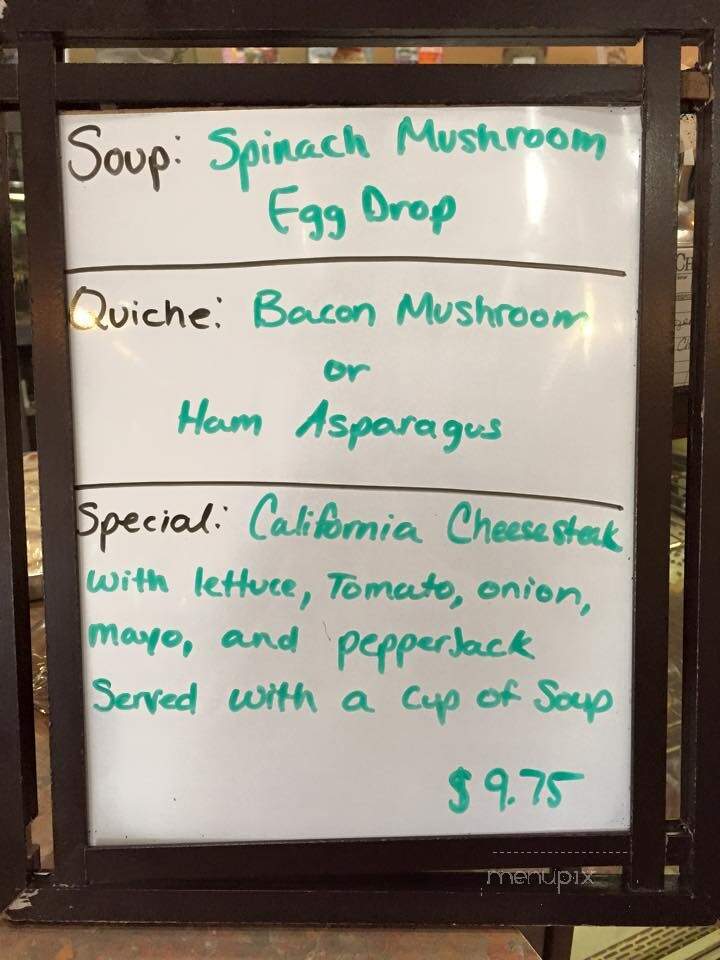 Soup: Spinach Mushroom
Egg Drop
Quiche: Bacon Mushroom
or
Ham Asparagus
Special: California Cheesesteak
with lettuce, Tomato, onion,
mayo, and pepperJack
Served with a cup of Soup
$9.75
menupix